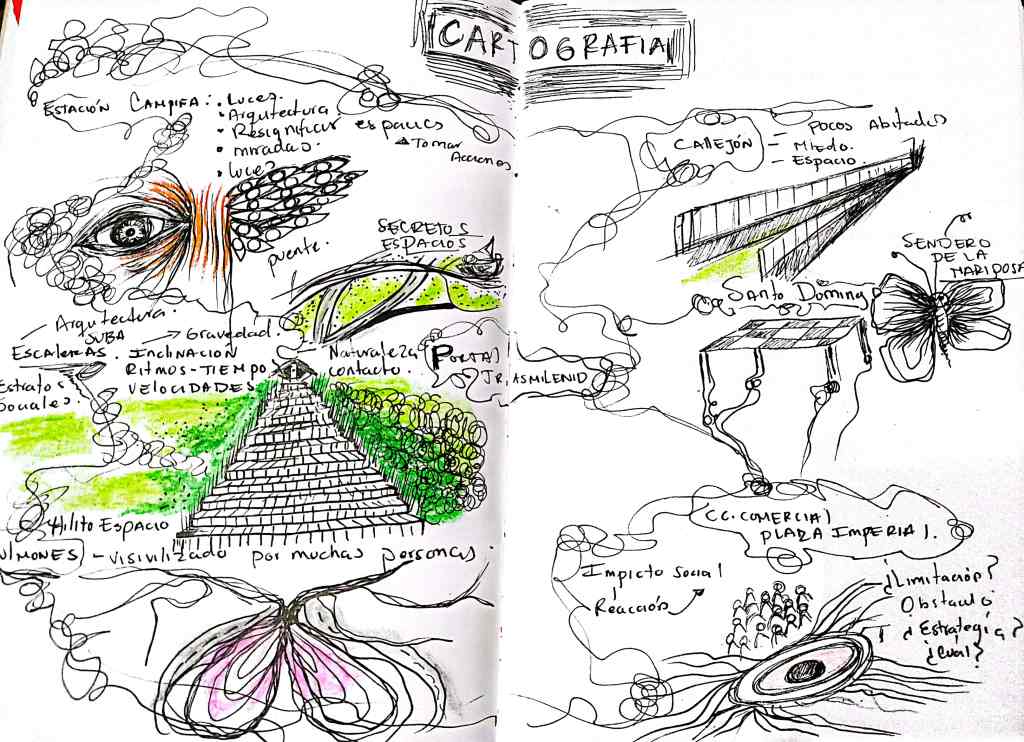 CARTOGRAFIA
ESTACIÓN CAMPIÑA:
• Luces.
• Arquitectura.
• Resignificar espacios
• miradas.
• Luces
Tomar
Acciones.
puente.
SECRETOS
ESPACIOS
Arquitectura.
SUBA → Gravedad.
ESCALERAS. INCLINACIÓN
RITMOS-TIEMPO
VELOCIDADES
Estratos
Sociales.
Naturaleza
contacto.
PORTAL
Hilito Espacio
- visivilizado por muchas personas.
CALLEJÓN
- POCOS Abitados
- Miedo.
- Espacio.
SENDERO
DE LA
MARIPOSA
Santo Doming
CC. COMERCIAL
PLAZA IMPERIAL.
Impacto social
Reacción
¿Limitación?
Obstaculo
¿Estrategia?
¿Cual?